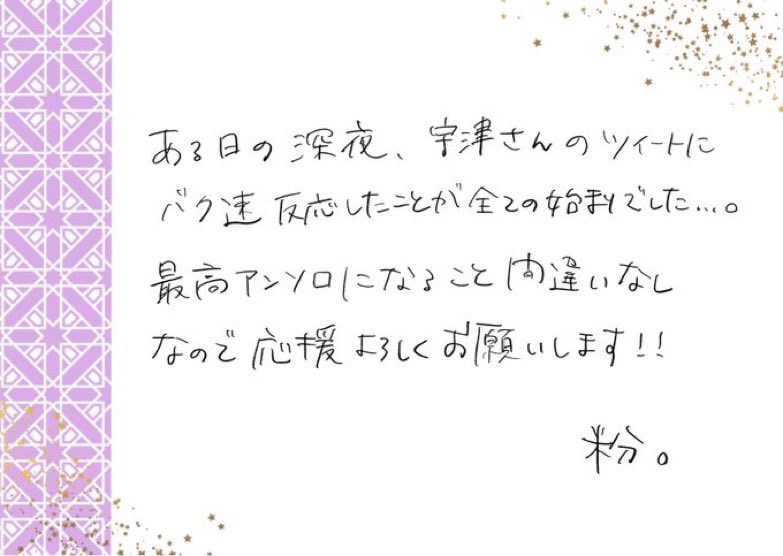 ある日の深夜、宇津さんのツイートに
バク速反応したことが全ての始まりでした...。
最高アンソロになること間違いなし
なので応援よろしくお願いします!!
粉。